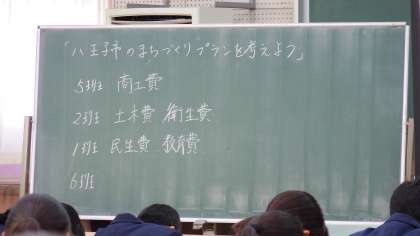 「八王子市のまちづくりプランを考えよう」
5班 商工費
2班 土木費 衛生費
1班 民生費 教育費
6班